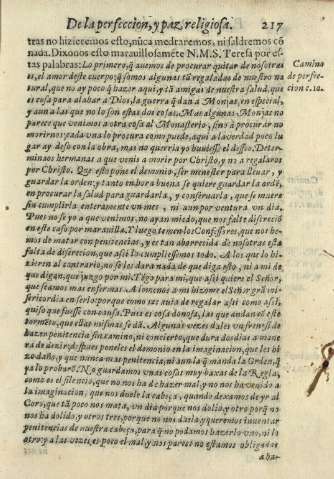 De la perfeccion, y paz religiosa. 217
tras no hizieremos esto, nũca medraremos, ni saldremos cõ
nada. Dixonos esto marauillosamẽte N. M. S. Teresa por es-
tas palabras: Lo primero, q̃ auemos de procurar quitar de nosotras
es, el amor deste cuerpo; q̃ somos algunas tã regaladas de nuestro na
tural, que no ay poco q̃ hazer aqui, y tã amigas de nuestra salud, que
es cosa para alabar a Dios, la guerra q̃ dan a Monjas, en especial,
y aun a las que no lo son estas dos cosas. Mas algunas Monjas no
parece que venimos a otra cosa al Monasterio, sino à procurar no
morirnos: cada vna lo procura como puede, aqui a la verdad poco lu
gar ay desso con la obra, mas no querria yo huuiesse el desseo. Deter-
minaos hermanas a que venis a morir por Christo, y no a regalaros
por Christo. Que esto pone el demonio, ser menester para lleuar, y
guardar la orden; y tanto enhora buena se quiere guardar la ordẽ,
en procurar la salud para guardarla, y conseruarla, que se muere
sin cumplirla enteramente vn mes, ni aun por ventura vn dia.
Pues no se yo a que venimos, no ayan miedo, que nos falte discreciõ
en este caso por marauilla. Y luego temen los Confessores, que nos he-
mos de matar con penitencias, y es tan aborrecida de nosotras esta
falta de discrecion, que assi lo cumpliessemos todo. A las que lo hi-
zieren al contrario, no se les dara nada de que diga esto, ni a mi de
que digan, que juzgo por mi. Tẽgo para mi, que assi quiere el Señor,
que seamos mas enfermas. A lo menos a mi hizome el Señor grã mi-
sericordia en serlo: porque como me auia de regalar assi como assi,
quiso que fuesse con causa. Pues es cosa donosa, las que andan cõ este
tormẽto, que ellas mismas se dã. Algunas vezes dales vn frenesi de
hazer penitencia sin camino, ni concierto, que dura dos dias a mane
ra de dezir; despues poneles el demonio en la imaginacion, que les hi
zo daño, y que nunca mas penitencia, ni aun la q̃ manda la Orden, q̃
ya lo probarõ. No guardamos vnas cosas muy baxas de la Regla,
como es el silencio, que no nos ha de hazer mal, y no nos ha venido a
la imaginacion, que nos duele la cabeça, quando dexamos de yr al
Coro, que tã poco nos mata, vn dia porque nos dolio, y otro porq̃ no
nos ha dolido, y otros tres, porque no nos duela, y queremos inuentar
penitencias de nuestra cabeça, para q̃ no podamos hazer lo vno, ni lo
otro: y a las vezes, es poco el mal, y nos parece no estamos obligadas
a ha-
Camino
de perfec
cion c. 10.